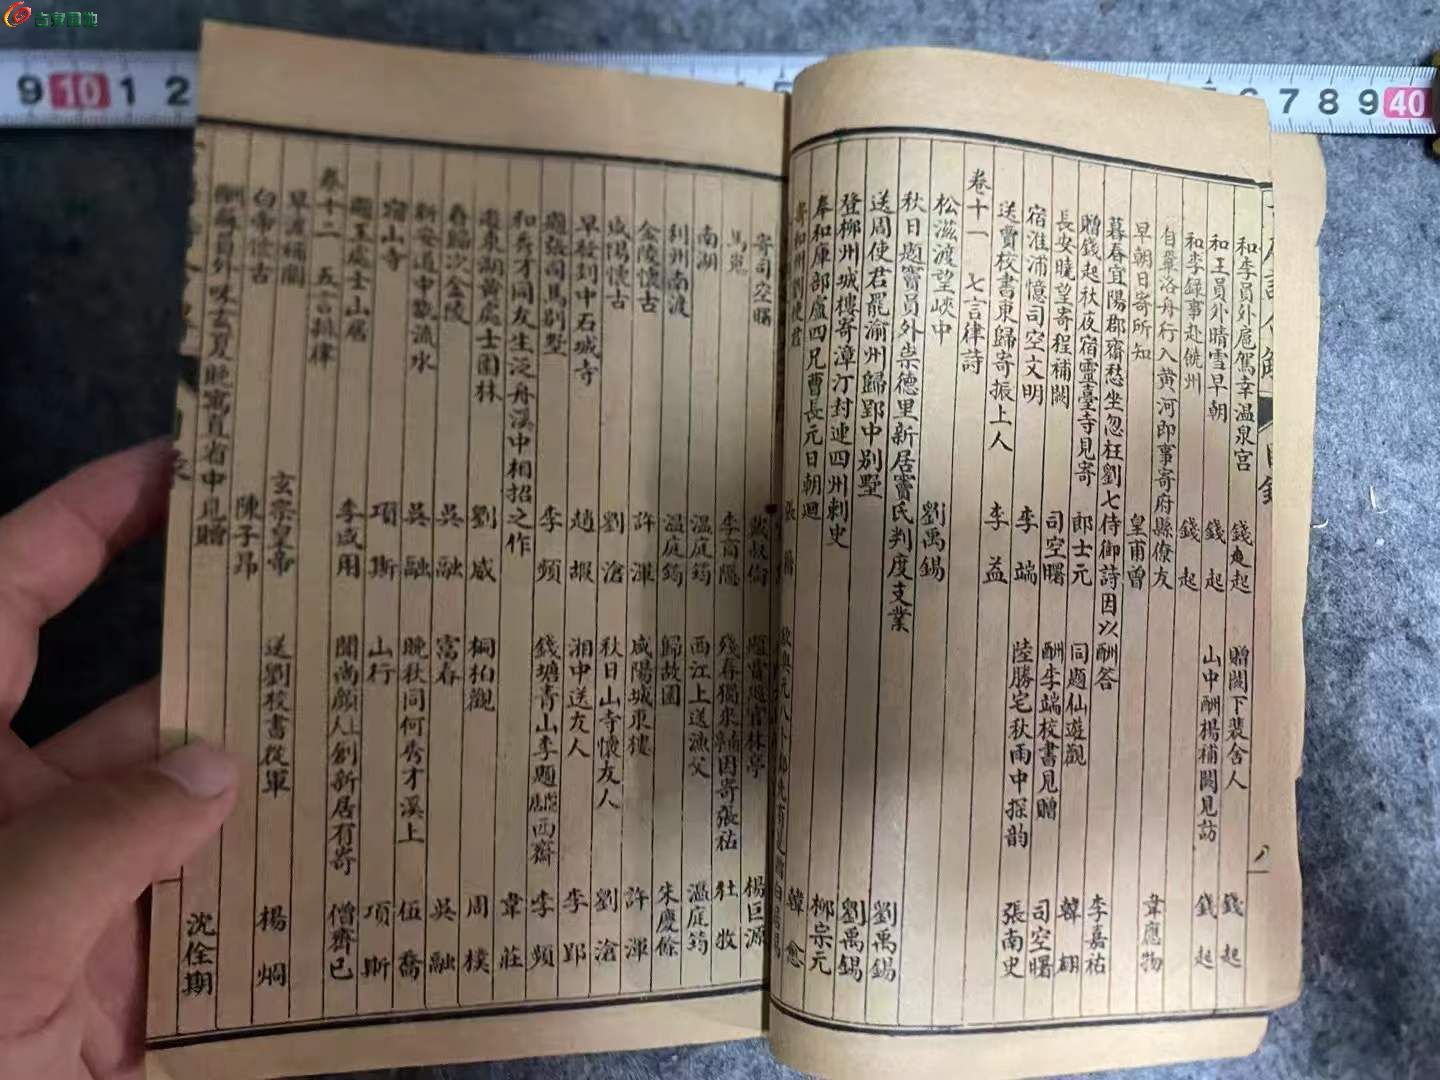 和李員外扈駕幸温泉宫 錢起 贈闕下裴舍人 錢起
和王員外晴雪早朝 錢起 山中酬楊補闕見訪 錢起
和李錄事赴饒州 錢起
自鞏洛舟行入黄河即事寄府縣僚友 韋應物
早朝日寄所知 皇甫曾
暮春宜陽郡齋愁坐忽枉劉七侍御詩因以酬答 李嘉祐
贈錢起秋夜宿靈臺寺見寄 郎士元 同題仙遊觀 韓翃
長安曉望寄程補闕 司空曙 酬李端校書見贈 司空曙
宿淮浦憶司空文明 李端 陸勝宅秋雨中探韵 張南史
送賈校書東歸寄振上人 李益
卷十一 七言律詩
松滋渡望峽中 劉禹錫
秋日題竇員外崇德里新居竇氏判度支業 劉禹錫
送周使君罷渝州歸郢中别墅 劉禹錫
登柳州城樓寄漳汀封連四州刺史 柳宗元
奉和庫部盧四兄曹長元日朝迴 韓愈
寄和州劉使君 張籍
寄司空曙 戴叔倫 楊巨源
馬嵬 李商隱 殘春獨來南園寄張祜 杜牧
南湖 温庭筠 西江上送漁父 溫庭筠
利州南渡 温庭筠 歸故園 朱慶餘
金陵懷古 許渾 咸陽城東樓 許渾
咸陽懷古 劉滄 秋日山寺懷友人 劉滄
早發剡中石城寺 趙嘏 湘中送友人 李郢
題張司馬别墅 李頻 錢塘青山李題居西齋 李頻
和秀才同友生泛舟溪中相招之作 韋莊
題東湖黄處士園林 劉威 桐柏觀 周樸
春歸次金陵 吳融 富春 吳融
新安道中翫流水 吳融 晚秋同何秀才溪上 伍喬
宿山寺 項斯 山行 項斯
題王處士山居 李咸用 聞尚顏上人創新居有寄 僧齊己
卷十二 五言排律
早渡蒲關 玄宗皇帝 送劉校書從軍 楊炯
白帝懷古 陳子昂
酬蘇員外味玄夏晚寓直省中見贈 沈佺期